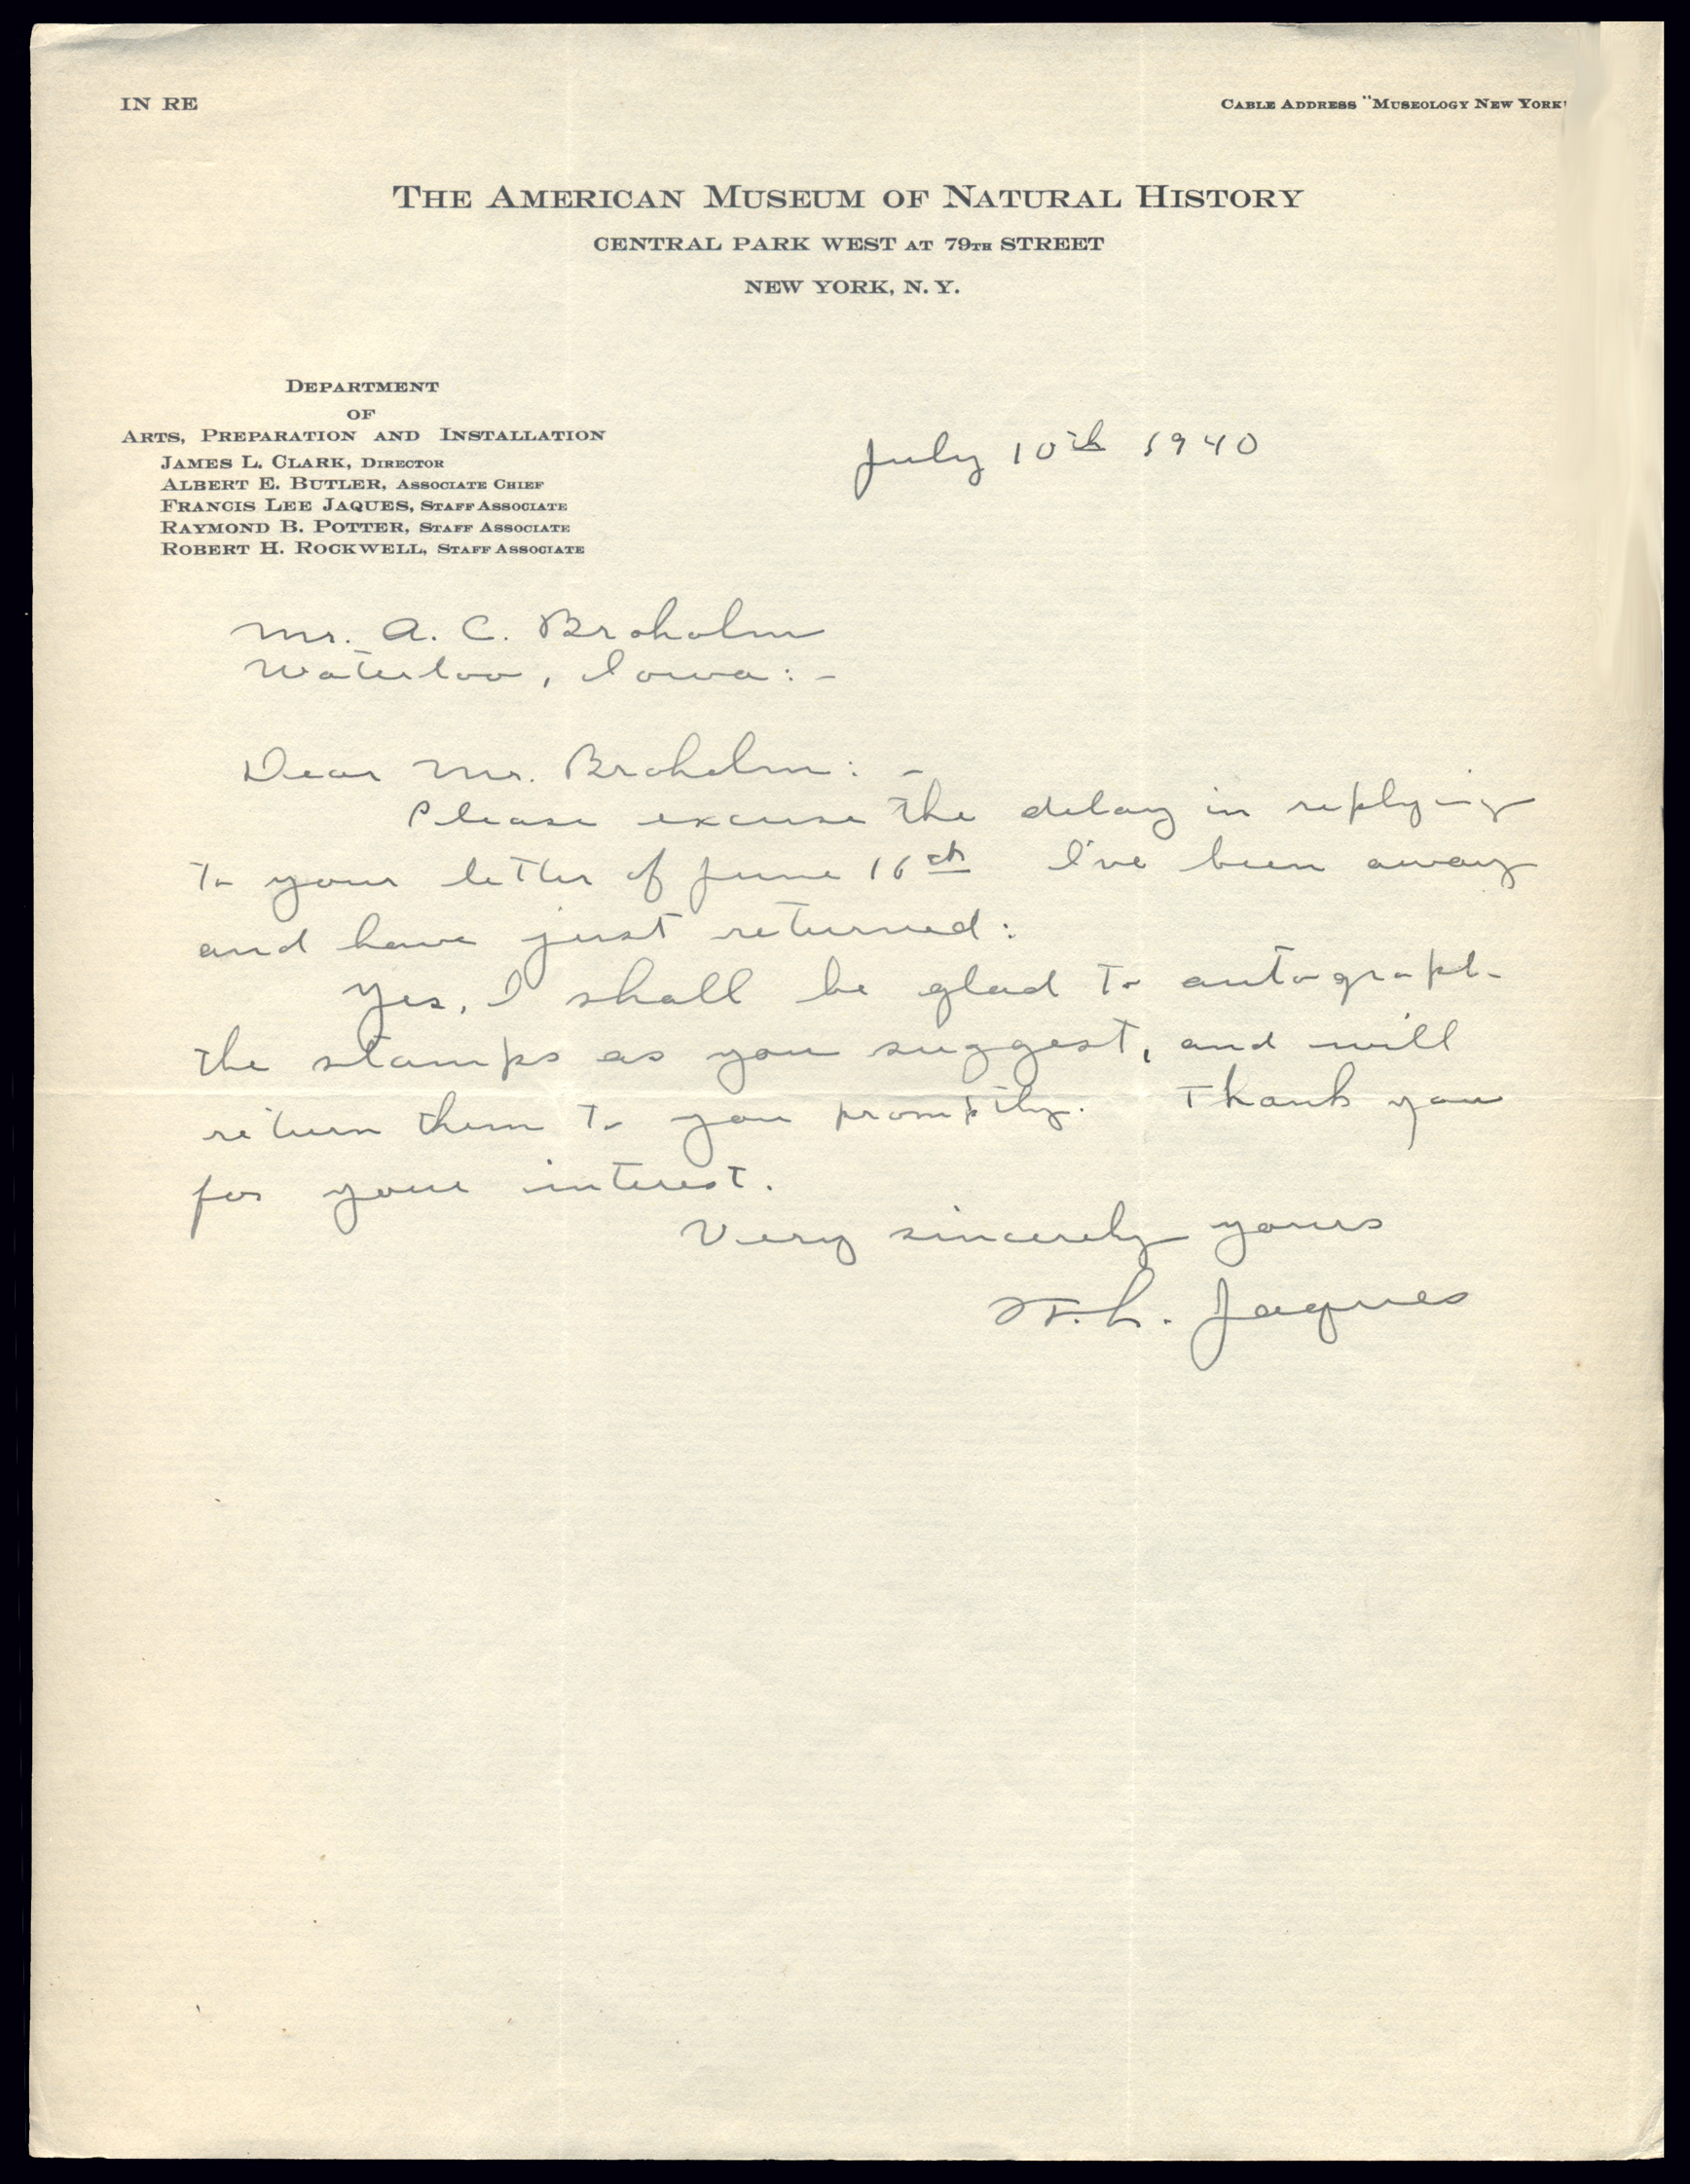 IN RE
CABLE ADDRESS "MUSEOLOGY NEW YORK"
THE AMERICAN MUSEUM OF NATURAL HISTORY
CENTRAL PARK WEST AT 79TH STREET
NEW YORK, N. Y.
DEPARTMENT
OF
ARTS, PREPARATION AND INSTALLATION
JAMES L. CLARK, DIRECTOR
ALBERT E. BUTLER, ASSOCIATE CHIEF
FRANCIS LEE JAQUES, STAFF ASSOCIATE
RAYMOND B. POTTER, STAFF ASSOCIATE
ROBERT H. ROCKWELL, STAFF ASSOCIATE
July 10th 1940
Mr. A. C. Broholm
Waterloo, Iowa: -
Dear Mr. Broholm: -
Please excuse the delay in replying
to your letter of June 16th I've been away
and have just returned:
Yes, I shall be glad to autograph
the stamps as you suggest, and will
return them to you promptly. Thank you
for your interest.
Very sincerely yours
F. L. Jaques